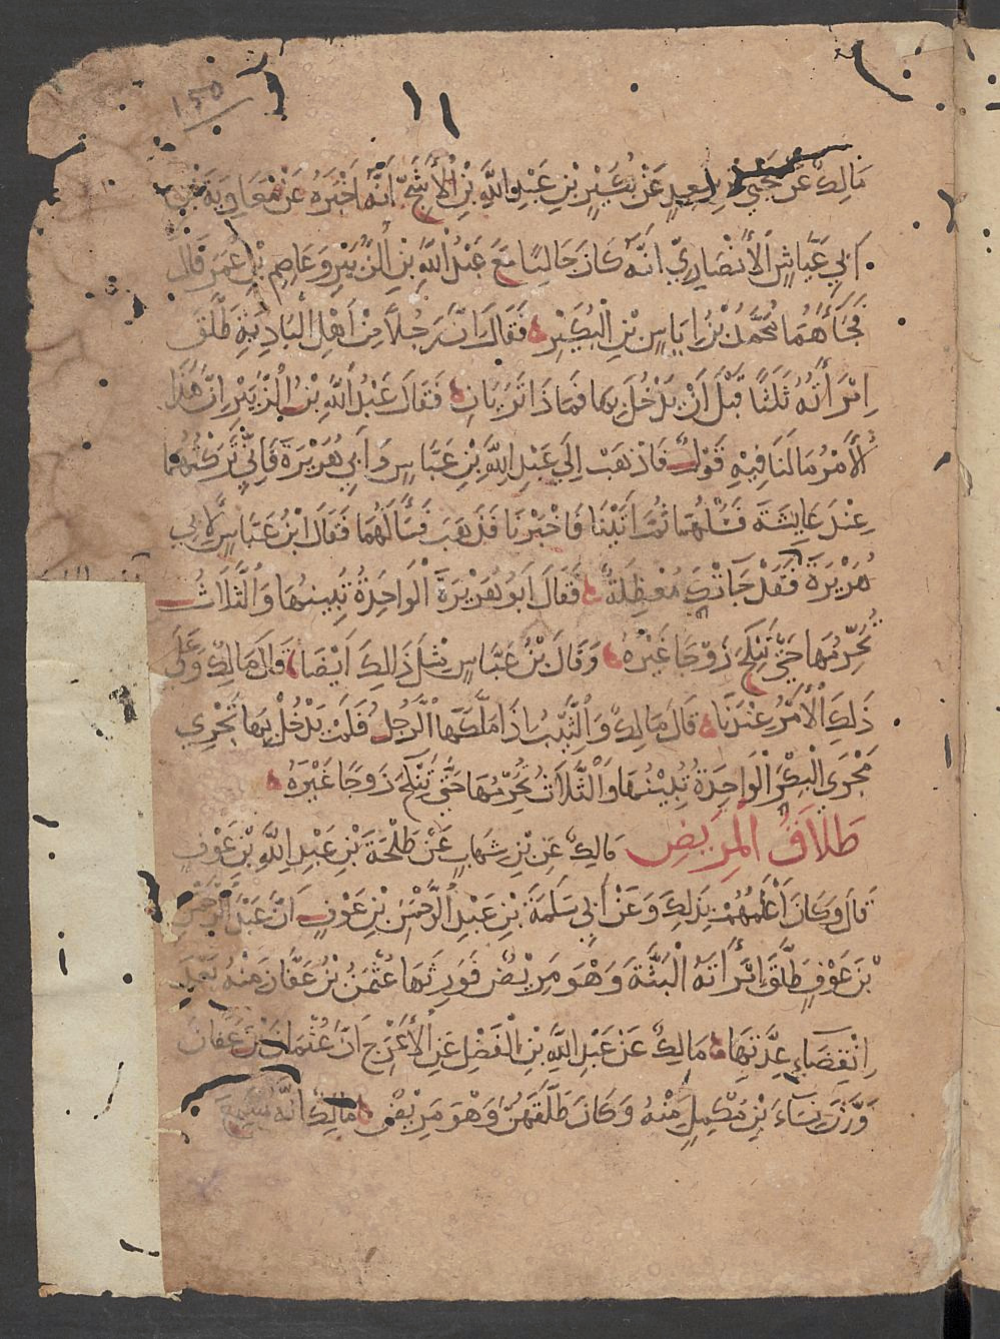 ١٥٠
مَالِكٌ عَنْ يَحْيَى بْنِ سَعِيدٍ عَنْ بُكَيْرِ بْنِ عَبْدِ اللَّهِ بْنِ الْأَشَجِّ أَنَّهُ أَخْبَرَهُ عَنْ مُعَاوِيَةَ بْنِ
أَبِي عَيَّاشٍ الْأَنْصَارِيِّ أَنَّهُ كَانَ جَالِسًا مَعَ عَبْدِ اللَّهِ بْنِ الزُّبَيْرِ وَعَاصِمِ بْنِ عُمَرَ قَالَ
فَجَاءَهُمَا مُحَمَّدُ بْنُ إِيَاسِ بْنِ الْبُكَيْرِ فَقَالَ إِنَّ رَجُلًا مِنْ أَهْلِ الْبَادِيَةِ طَلَّقَ
امْرَأَتَهُ ثَلَثًا قَبْلَ أَنْ يَدْخُلَ بِهَا فَمَا ذَا تَرَيَانِ فَقَالَ عَبْدُ اللَّهِ بْنُ الزُّبَيْرِ إِنَّ هَذَا
الْأَمْرُ مَا لَنَا فِيهِ قَوْلٌ فَاذْهَبْ إِلَى عَبْدِ اللَّهِ بْنِ عَبَّاسٍ وَأَبِي هُرَيْرَةَ فَإِنِّي تَرَكْتُهُمَا
عِنْدَ عَايِشَةَ فَسَلْهُمَا ثُمَّ ائْتِنَا فَاخْبِرْنَا فَذَهَبَ فَسَأَلَهُمَا فَقَالَ ابْنُ عَبَّاسٍ لِأَبِي
هُرَيْرَةَ فَقَدْ جَآتْكَ مُعْضِلَةٌ فَقَالَ أَبُو هُرَيْرَةَ الْوَاحِدَةُ تُبِينُهَا وَالثَّلَاثُ
تُحَرِّمُهَا حَتَّى تَنْكِحَ زَوْجًا غَيْرَهُ وَقَالَ بْنُ عَبَّاسٍ مِثْلَ ذَالِكَ أَيْضًا قَالَ مَالِكٌ وَعَلَى
ذَلِكَ الْأَمْرُ عِنْدَنَا قَالَ مَالِكٌ وَالثَّيِّبُ إِذَا مَلَّكَهَا الرَّجُلُ فَلَمْ يَدْخُلْ بِهَا تَجْرِي
مَجْرَى الْبِكْرِ الْوَاحِدَةُ تُبِينُهَا وَالثَّلَاثُ تُحَرِّمُهَا حَتَّى تَنْكِحَ زَوْجًا غَيْرَهُ
طَلَاقُ الْمَرِيضِ مَالِكٌ عَنِ بْنِ شِهَابٍ عَنْ طَلْحَةَ بْنِ عَبْدِ اللَّهِ بْنِ عَوْفٍ
قَالَ وَكَانَ أَعْلَمُهُمْ بِذَلِكَ وَعَنْ أَبِي سَلَمَةَ بْنِ عَبْدِ الرَّحْمَنِ بْنِ عَوْفٍ أَنَّ عَبْدَ الرَّحْمَنِ
بْنَ عَوْفٍ طَلَّقَ امْرَأَتَهُ الْبَتَّةَ وَهُوَ مَرِيضٌ فَوَرَثَهَا عُثْمَنُ بْنُ عَفَّانَ مِنْهُ بَعْدَ
انْقِضَاءِ عِدَّتِهَا مَالِكٌ عَنْ عَبْدِ اللَّهِ بْنِ الْفَضْلِ عَنِ الْأَعْرَجِ أَنَّ عُثْمَانَ بْنَ عَفَّانَ
وَرَّثَ نِسَاءَ بْنِ مُكْمِلٍ مِنْهُ وَكَانَ طَلَّقَهُنَّ وَهُوَ مَرِيضٌ مَالِكٌ أَنَّهُ سَمِعَ